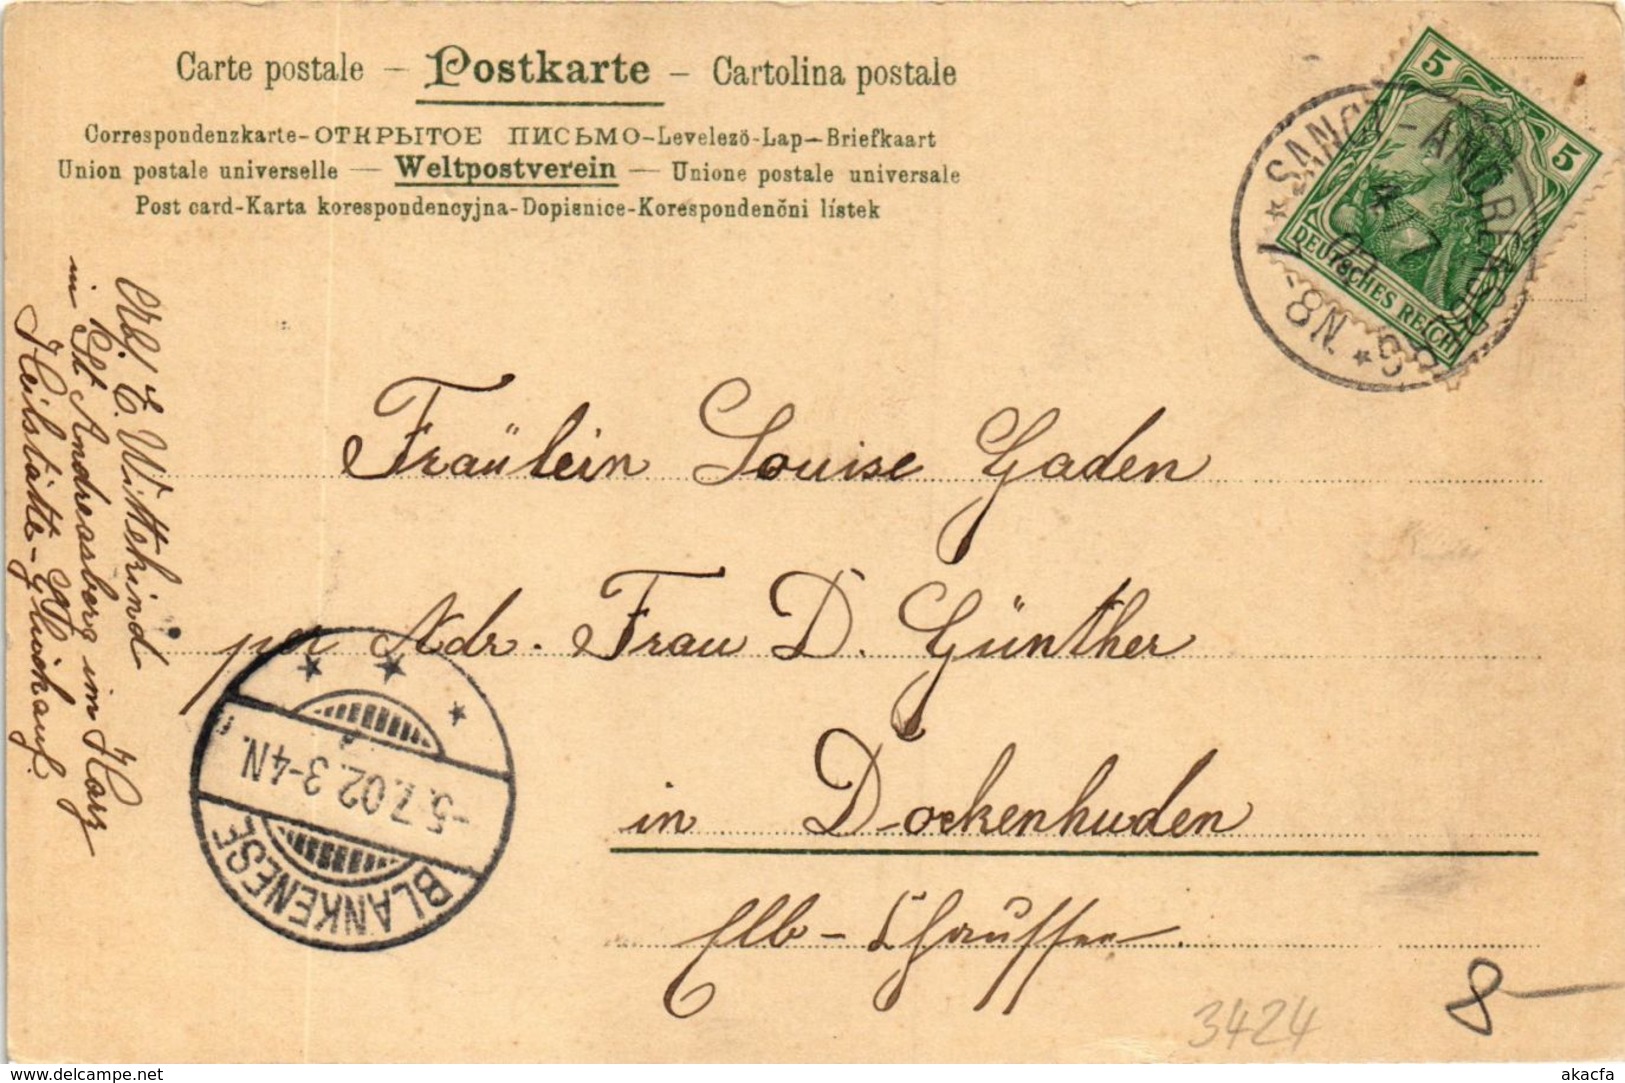 Carte postale – Postkarte – Cartolina postale
Correspondenzkarte-ОТКРЫТОЕ ПИСЬМО-Levelezö-Lap-Briefkaart
Union postale universelle — Weltpostverein — Unione postale universale
Post card-Karta korespondencyjna-Dopisnice-Korespondenčni lístek
5
5
DEUTSCHES REICH
SANCT-ANDREASBERG
4 7
8-N.
Fräulein Louise Gaden
per Adr. Frau D. Günther
in Dockenhuden
Elb-Chaussee
Abs. E. Wittekind
in St Andreasberg im Harz
Heilstätte-Glückauf.
BLANKENESE
-5.7.02.3-4N.
3424
8-
www.delcampe.net
akacfa